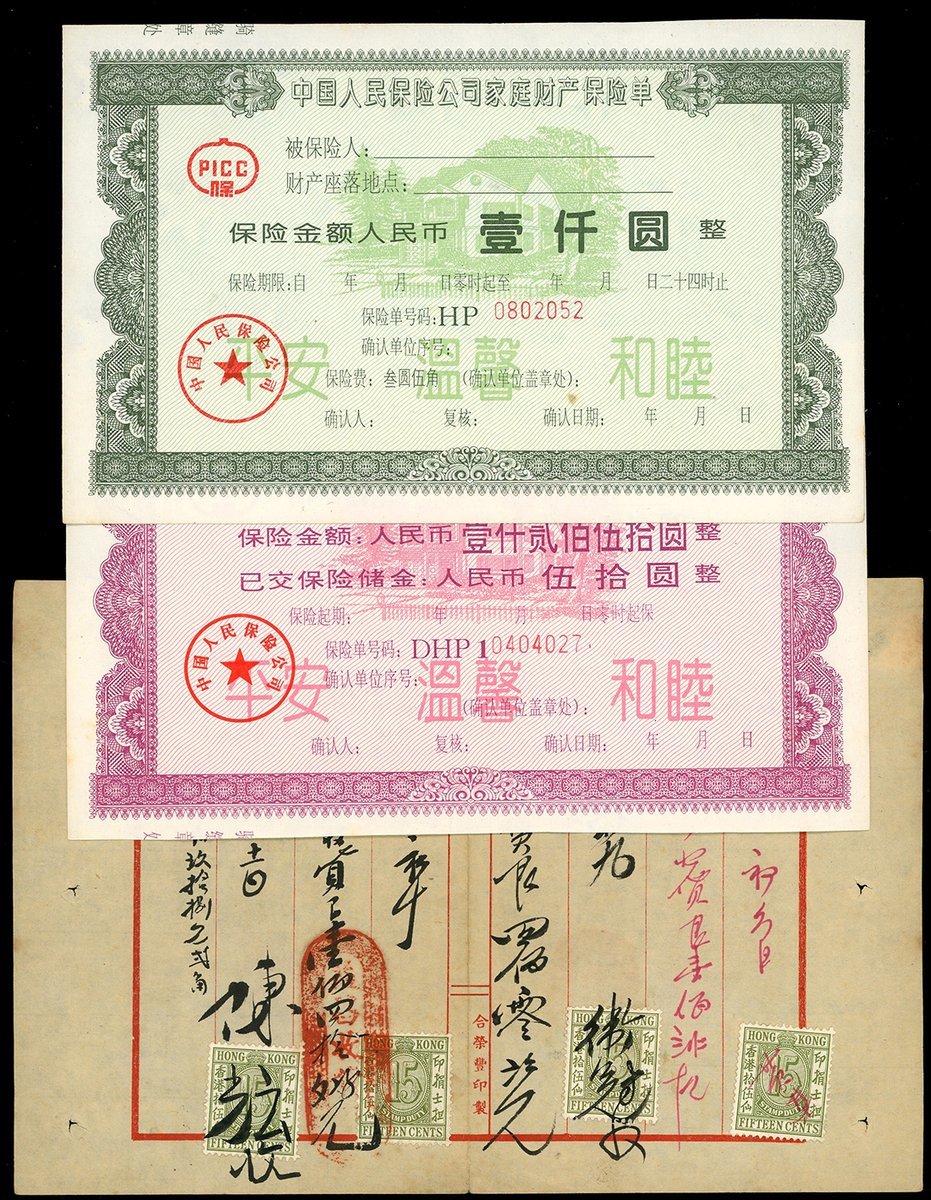 骑缝章处
中国人民保险公司家庭财产保险单
PICC
保
被保险人:
财产座落地点:
保险金额人民币 壹仟圆 整
保险期限:自 年 月 日零时起至 年 月 日二十四时止
保险单号码:HP 0802052
确认单位序号:
平安 温馨 和睦
中国人民保险公司
保险费: 叁圆伍角 (确认单位盖章处):
确认人: 复核: 确认日期: 年 月 日
保险金额: 人民币 壹仟贰佰伍拾圆 整
已交保险储金: 人民币 伍拾圆 整
保险起期: 年 月 日零时起保
保险单号码: DHP 1 0404027
确认单位序号:
平安 温馨 和睦
中国人民保险公司
(确认单位盖章处):
确认人: 复核: 确认日期: 年 月 日
骑缝章处
初六日
四佰零六元
合荣豐印製
玖拾捌元弍角
HONG KONG
香港拾伍仙
印捐士担
15
FIFTEEN CENTS
HONG KONG
印捐士担
15
FIFTEEN CENTS
HONG KONG
香港拾伍仙
印捐士担
FIFTEEN CENTS
HONG KONG
香港拾伍仙
印捐士担
15
STAMP DUTY
FIFTEEN CENTS